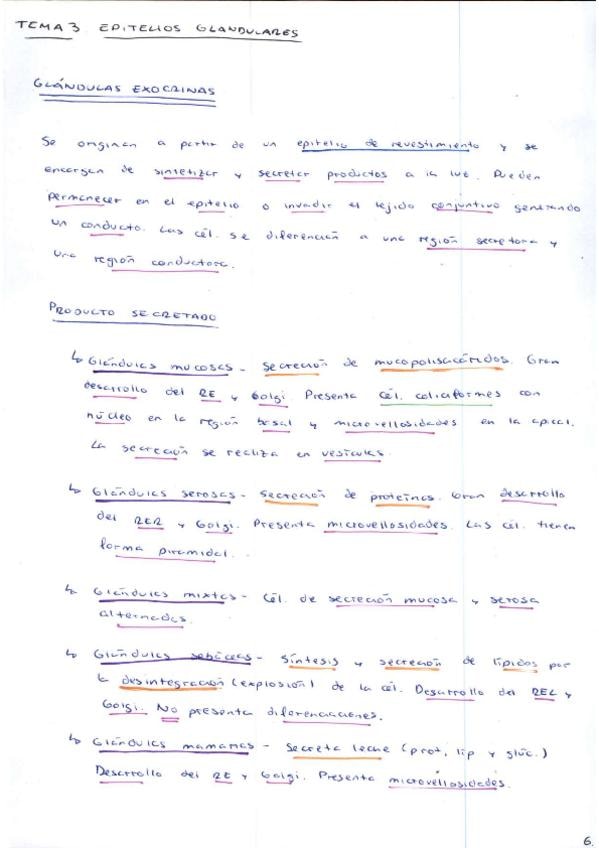 TEMA 3 EPITELIOS GLANDULARES
GLÁNDULAS EXOCRINAS
Se originan a partir de un epitelio de revestimiento y se
encargan de sintetizar y secretar productos a la luz. Pueden
permanecer en el epitelio o invadir el tejido conjuntivo generando
un conducto. Las cél. se diferencian a una región secretora y
una región conductora.
PRODUCTO SECRETADO
↳ Glándulas mucosas - secreción de mucopolisacáridos. Gran
desarrollo del RE y Golgi. Presenta cél. caliciformes con
núcleo en la región basal y microvellosidades en la apical.
La secreción se realiza en vesículas.
↳ Glándulas serosas - secreción de proteínas. Gran desarrollo
del RER y Golgi. Presenta microvellosidades. Las cél. tienen
forma piramidal.
↳ Glándulas mixtas - Cél. de secreción mucosa y serosa
alternadas.
↳ Glándulas sebáceas - Síntesis y secreción de lípidos por
la desintegración (explosión) de la cél. Desarrollo del REL y
Golgi. No presenta diferenciaciones.
↳ Glándulas mamarias - Secreta leche (prot, lip y glúc.)
Desarrollo del RE y Golgi. Presenta microvellosidades.
6.